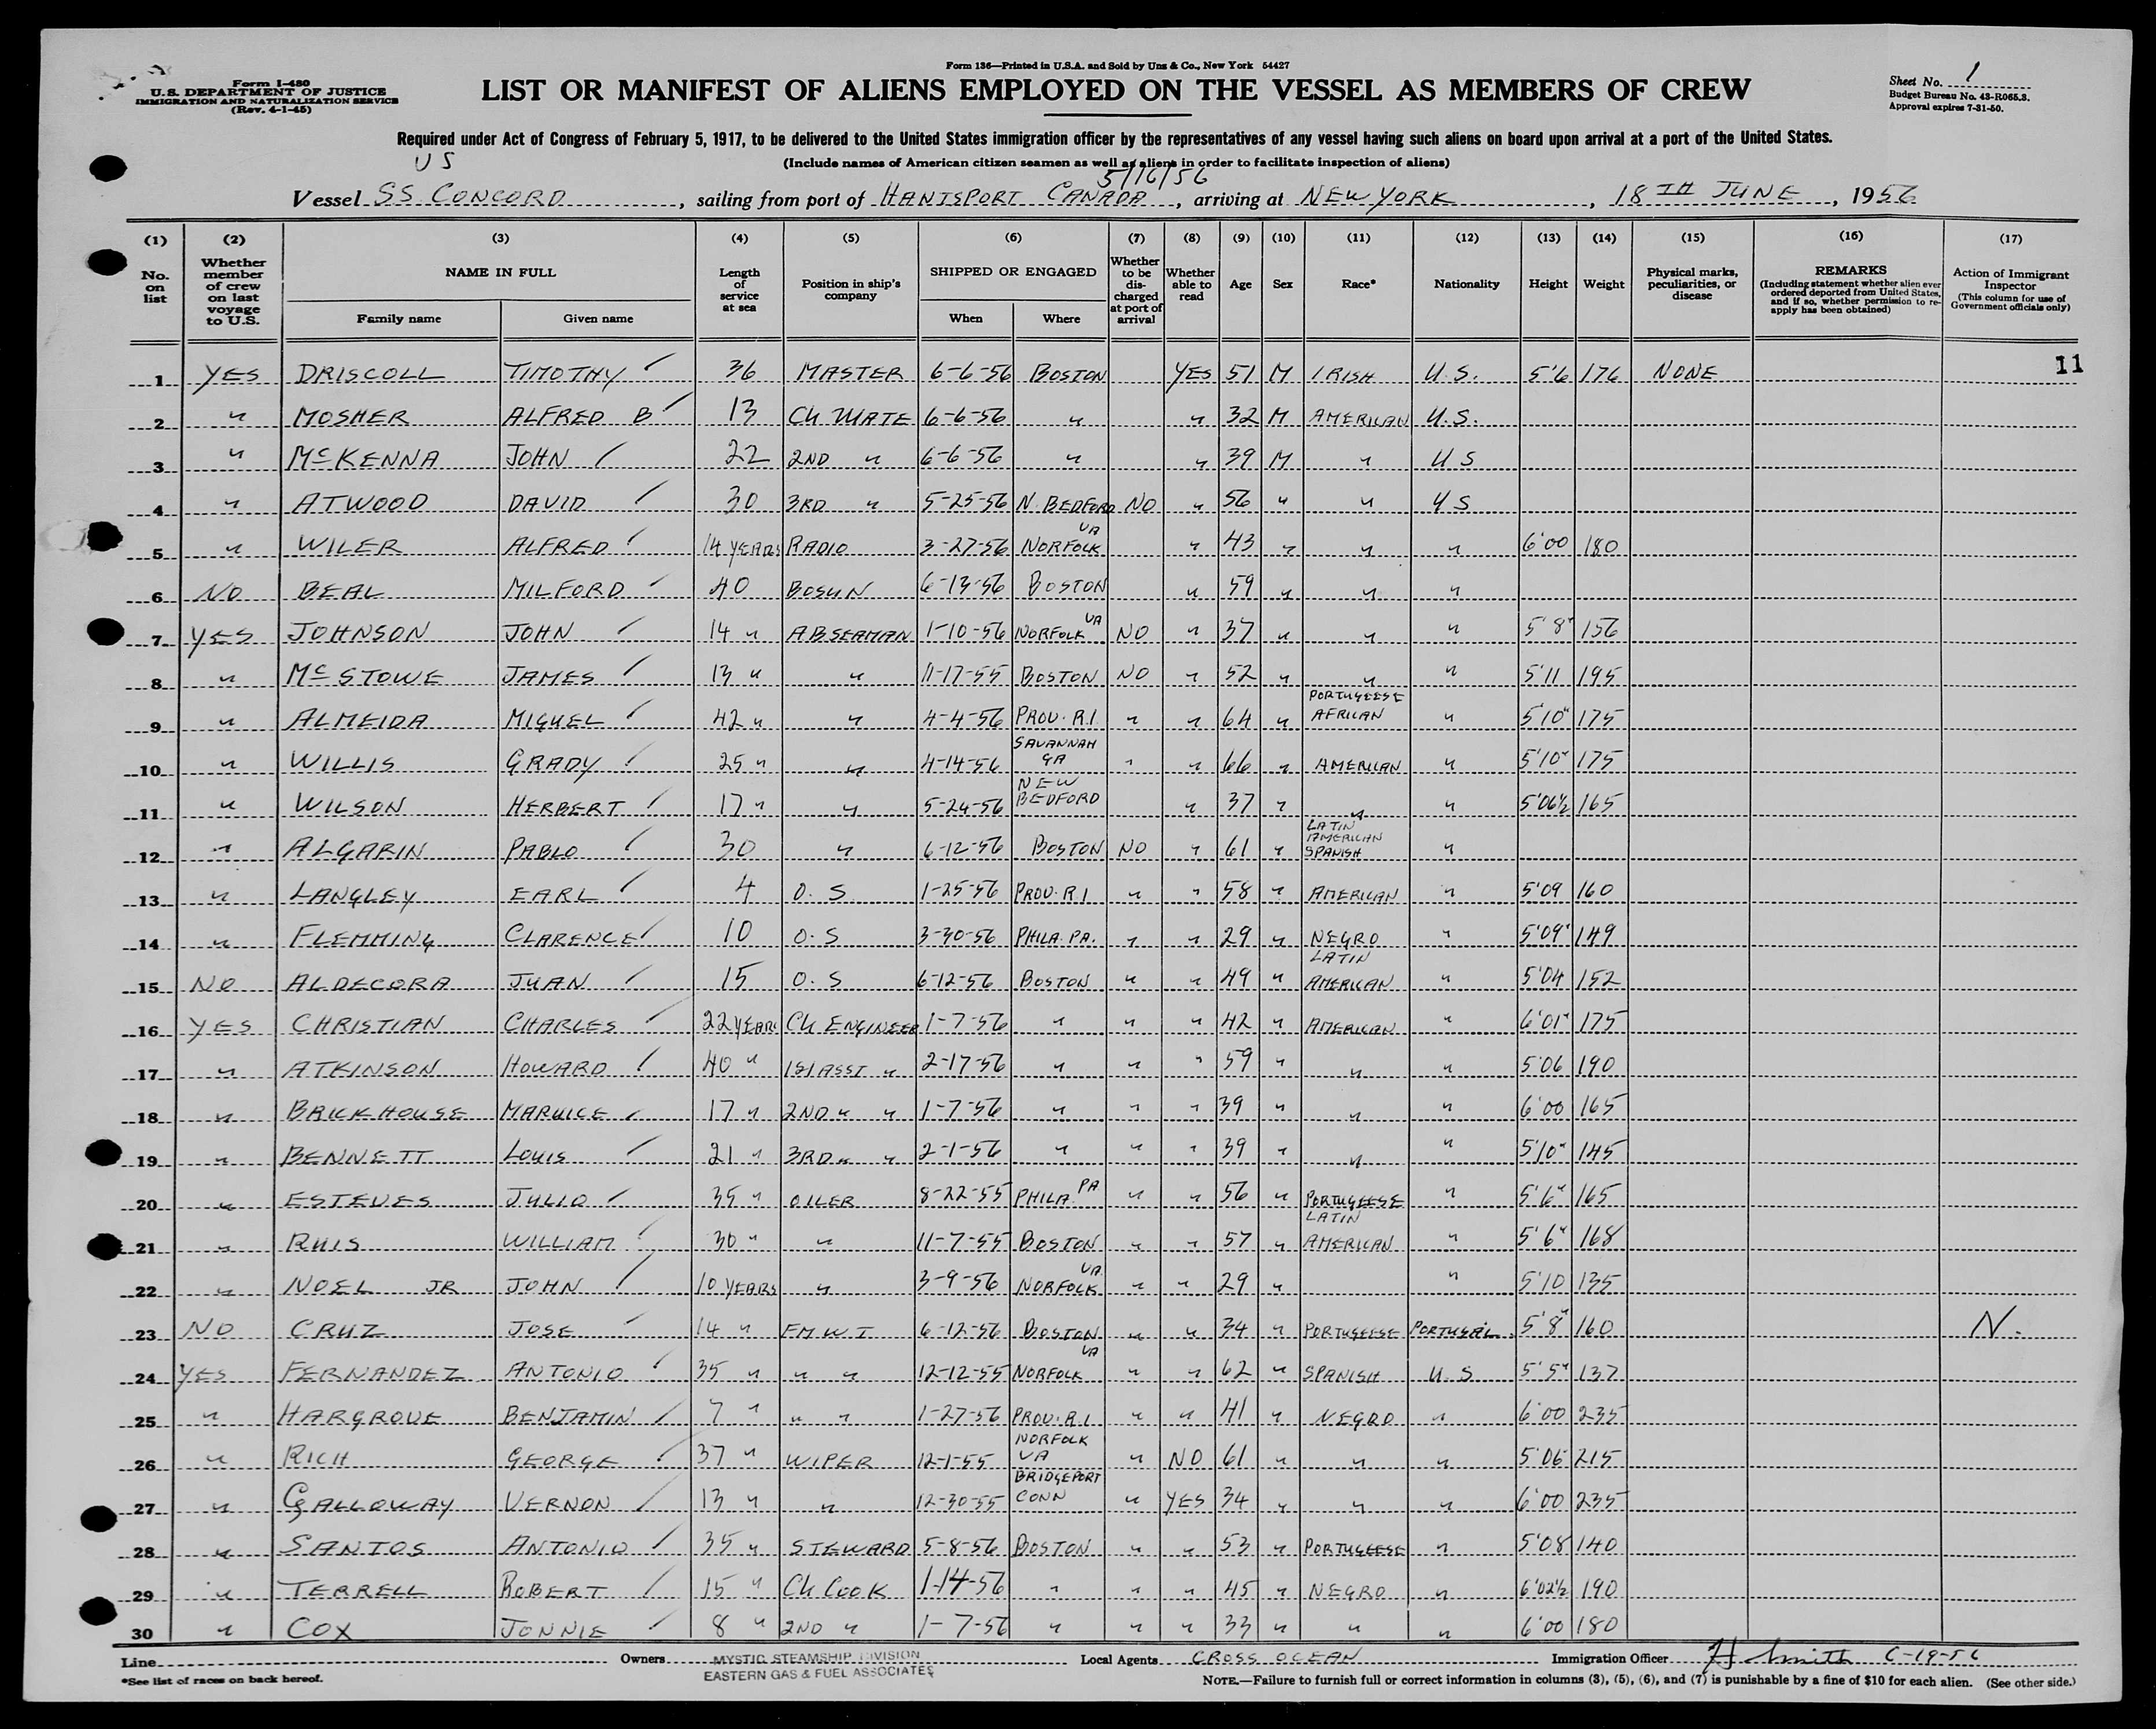 Form I-480
U.S. DEPARTMENT OF JUSTICE
IMMIGRATION AND NATURALIZATION SERVICE
(Rev. 4-1-45)
Form 136—Printed in U.S.A. and Sold by Unz & Co., New York 54427
LIST OR MANIFEST OF ALIENS EMPLOYED ON THE VESSEL AS MEMBERS OF CREW
Sheet No. 1
Budget Bureau No. 43-R065.3.
Approval expires 7-31-50.
Required under Act of Congress of February 5, 1917, to be delivered to the United States immigration officer by the representatives of any vessel having such aliens on board upon arrival at a port of the United States.
(Include names of American citizen seamen as well as aliens in order to facilitate inspection of aliens)
US
5/16/56
Vessel SS CONCORD, sailing from port of HANTSPORT CANADA, arriving at NEW YORK, 18TH JUNE, 1956
(1) (2) (3) (4) (5) (6) (7) (8) (9) (10) (11) (12) (13) (14) (15) (16) (17)
No. on list
Whether member of crew on last voyage to U.S.
NAME IN FULL
Family name Given name
Length of service at sea
Position in ship's company
SHIPPED OR ENGAGED
When Where
Whether to be discharged at port of arrival
Whether able to read
Age
Sex
Race*
Nationality
Height
Weight
Physical marks, peculiarities, or disease
REMARKS
(Including statement whether alien ever ordered deported from United States, and if so, whether permission to reapply has been obtained)
Action of Immigrant Inspector
(This column for use of Government officials only)
11
1 YES DRISCOLL TIMOTHY 36 MASTER 6-6-56 BOSTON YES 51 M IRISH U.S. 5'6 176 NONE
2 " MOSHER ALFRED B 13 CH MATE 6-6-56 " " 32 M AMERICAN U.S.
3 " McKENNA JOHN 22 2ND " 6-6-56 " " 39 M " U S
4 " ATWOOD DAVID 30 3RD " 5-25-56 N. BEDFORD NO " 56 " " U S
5 " WILER ALFRED 14 YEARS RADIO 3-27-56 NORFOLK VA " 43 " " " 6'00 180
6 NO BEAL MILFORD 40 BOSUN 6-13-56 BOSTON " 59 " " "
7 YES JOHNSON JOHN 14 " AB SEAMAN 1-10-56 NORFOLK VA NO " 37 " " " 5'8" 156
8 " McSTOWE JAMES 13 " " 11-17-55 BOSTON NO " 52 " " " 5'11 195
9 " ALMEIDA MIGUEL 42 " " 4-4-56 PROV. R.I. " " 64 " PORTUGEESE AFRICAN " 5'10" 175
10 " WILLIS GRADY 25 " " 4-14-56 SAVANNAH GA " " 66 " AMERICAN " 5'10" 175
11 " WILSON HERBERT 17 " " 5-24-56 NEW BEDFORD " 37 " " " 5'06½ 165
12 " ALGARIN PABLO 30 " 6-12-56 BOSTON NO " 61 " LATIN AMERICAN SPANISH "
13 " LANGLEY EARL 4 O. S 1-25-56 PROV. R I " " 58 " AMERICAN " 5'09 160
14 " FLEMMING CLARENCE 10 O. S 3-30-56 PHILA. PA. " " 29 " NEGRO " 5'09" 149
15 NO ALDECORA JUAN 15 O. S 6-12-56 BOSTON " " 49 " LATIN AMERICAN " 5'04 152
16 YES CHRISTIAN CHARLES 22 YEARS CH ENGINEER 1-7-56 " " " 42 " AMERICAN " 6'01" 175
17 " ATKINSON HOWARD 40 " 1ST ASST " 2-17-56 " " " 59 " " " 5'06 190
18 " BRICKHOUSE MARUICE 17 " 2ND " " 1-7-56 " " " 39 " " " 6'00 165
19 " BENNETT LOUIS 21 " 3RD " " 2-1-56 " " " 39 " " " 5'10" 145
20 " ESTEVES JULIO 35 " OILER 8-22-55 PHILA. PA " " 56 " PORTUGEESE " 5'6" 165
21 " RUIS WILLIAM 30 " " 11-7-55 BOSTON " " 57 " LATIN AMERICAN " 5'6" 168
22 " NOEL JR JOHN 10 YEARS " 3-9-56 NORFOLK VA. " " 29 " " 5'10 135
23 NO CRUZ JOSE 14 " FMWT 6-12-56 BOSTON " " 34 " PORTUGEESE PORTUGAL. 5'8" 160 N.
24 YES FERNANDEZ ANTONIO 35 " " " 12-12-55 NORFOLK VA " " 62 " SPANISH U.S 5'5" 137
25 " HARGROVE BENJAMIN 7 " " " 1-27-56 PROV. R.I " " 41 " NEGRO " 6'00 235
26 " RICH GEORGE 37 " WIPER 12-1-55 NORFOLK VA " NO 61 " " " 5'06 215
27 " GALLOWAY VERNON 13 " " 12-30-55 BRIDGEPORT CONN " YES 34 " " " 6'00 235
28 " SANTOS ANTONIO 35 " STEWARD 5-8-56 BOSTON " " 53 " PORTUGEESE " 5'08 140
29 " TERRELL ROBERT 15 " CH COOK 1-14-56 " " " 45 " NEGRO " 6'02½ 190
30 " COX JONNIE 8 " 2ND " 1-7-56 " " " 33 " " " 6'00 180
Line Owners MYSTIC STEAMSHIP DIVISION
EASTERN GAS & FUEL ASSOCIATES
Local Agents CROSS OCEAN Immigration Officer H Smith 6-19-56
*See list of races on back hereof.
NOTE.—Failure to furnish full or correct information in columns (3), (5), (6), and (7) is punishable by a fine of $10 for each alien. (See other side.)